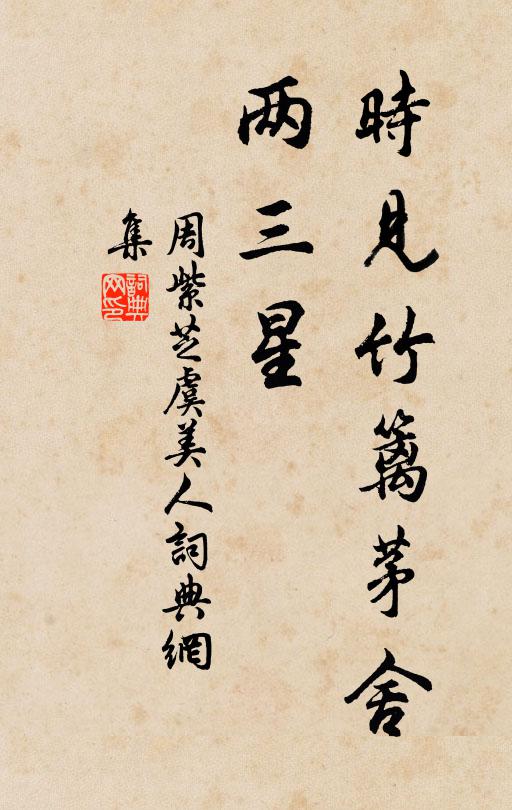 時見竹籬茅舍
两三星
周紫芝虞美人詞典網
集
詞典網印